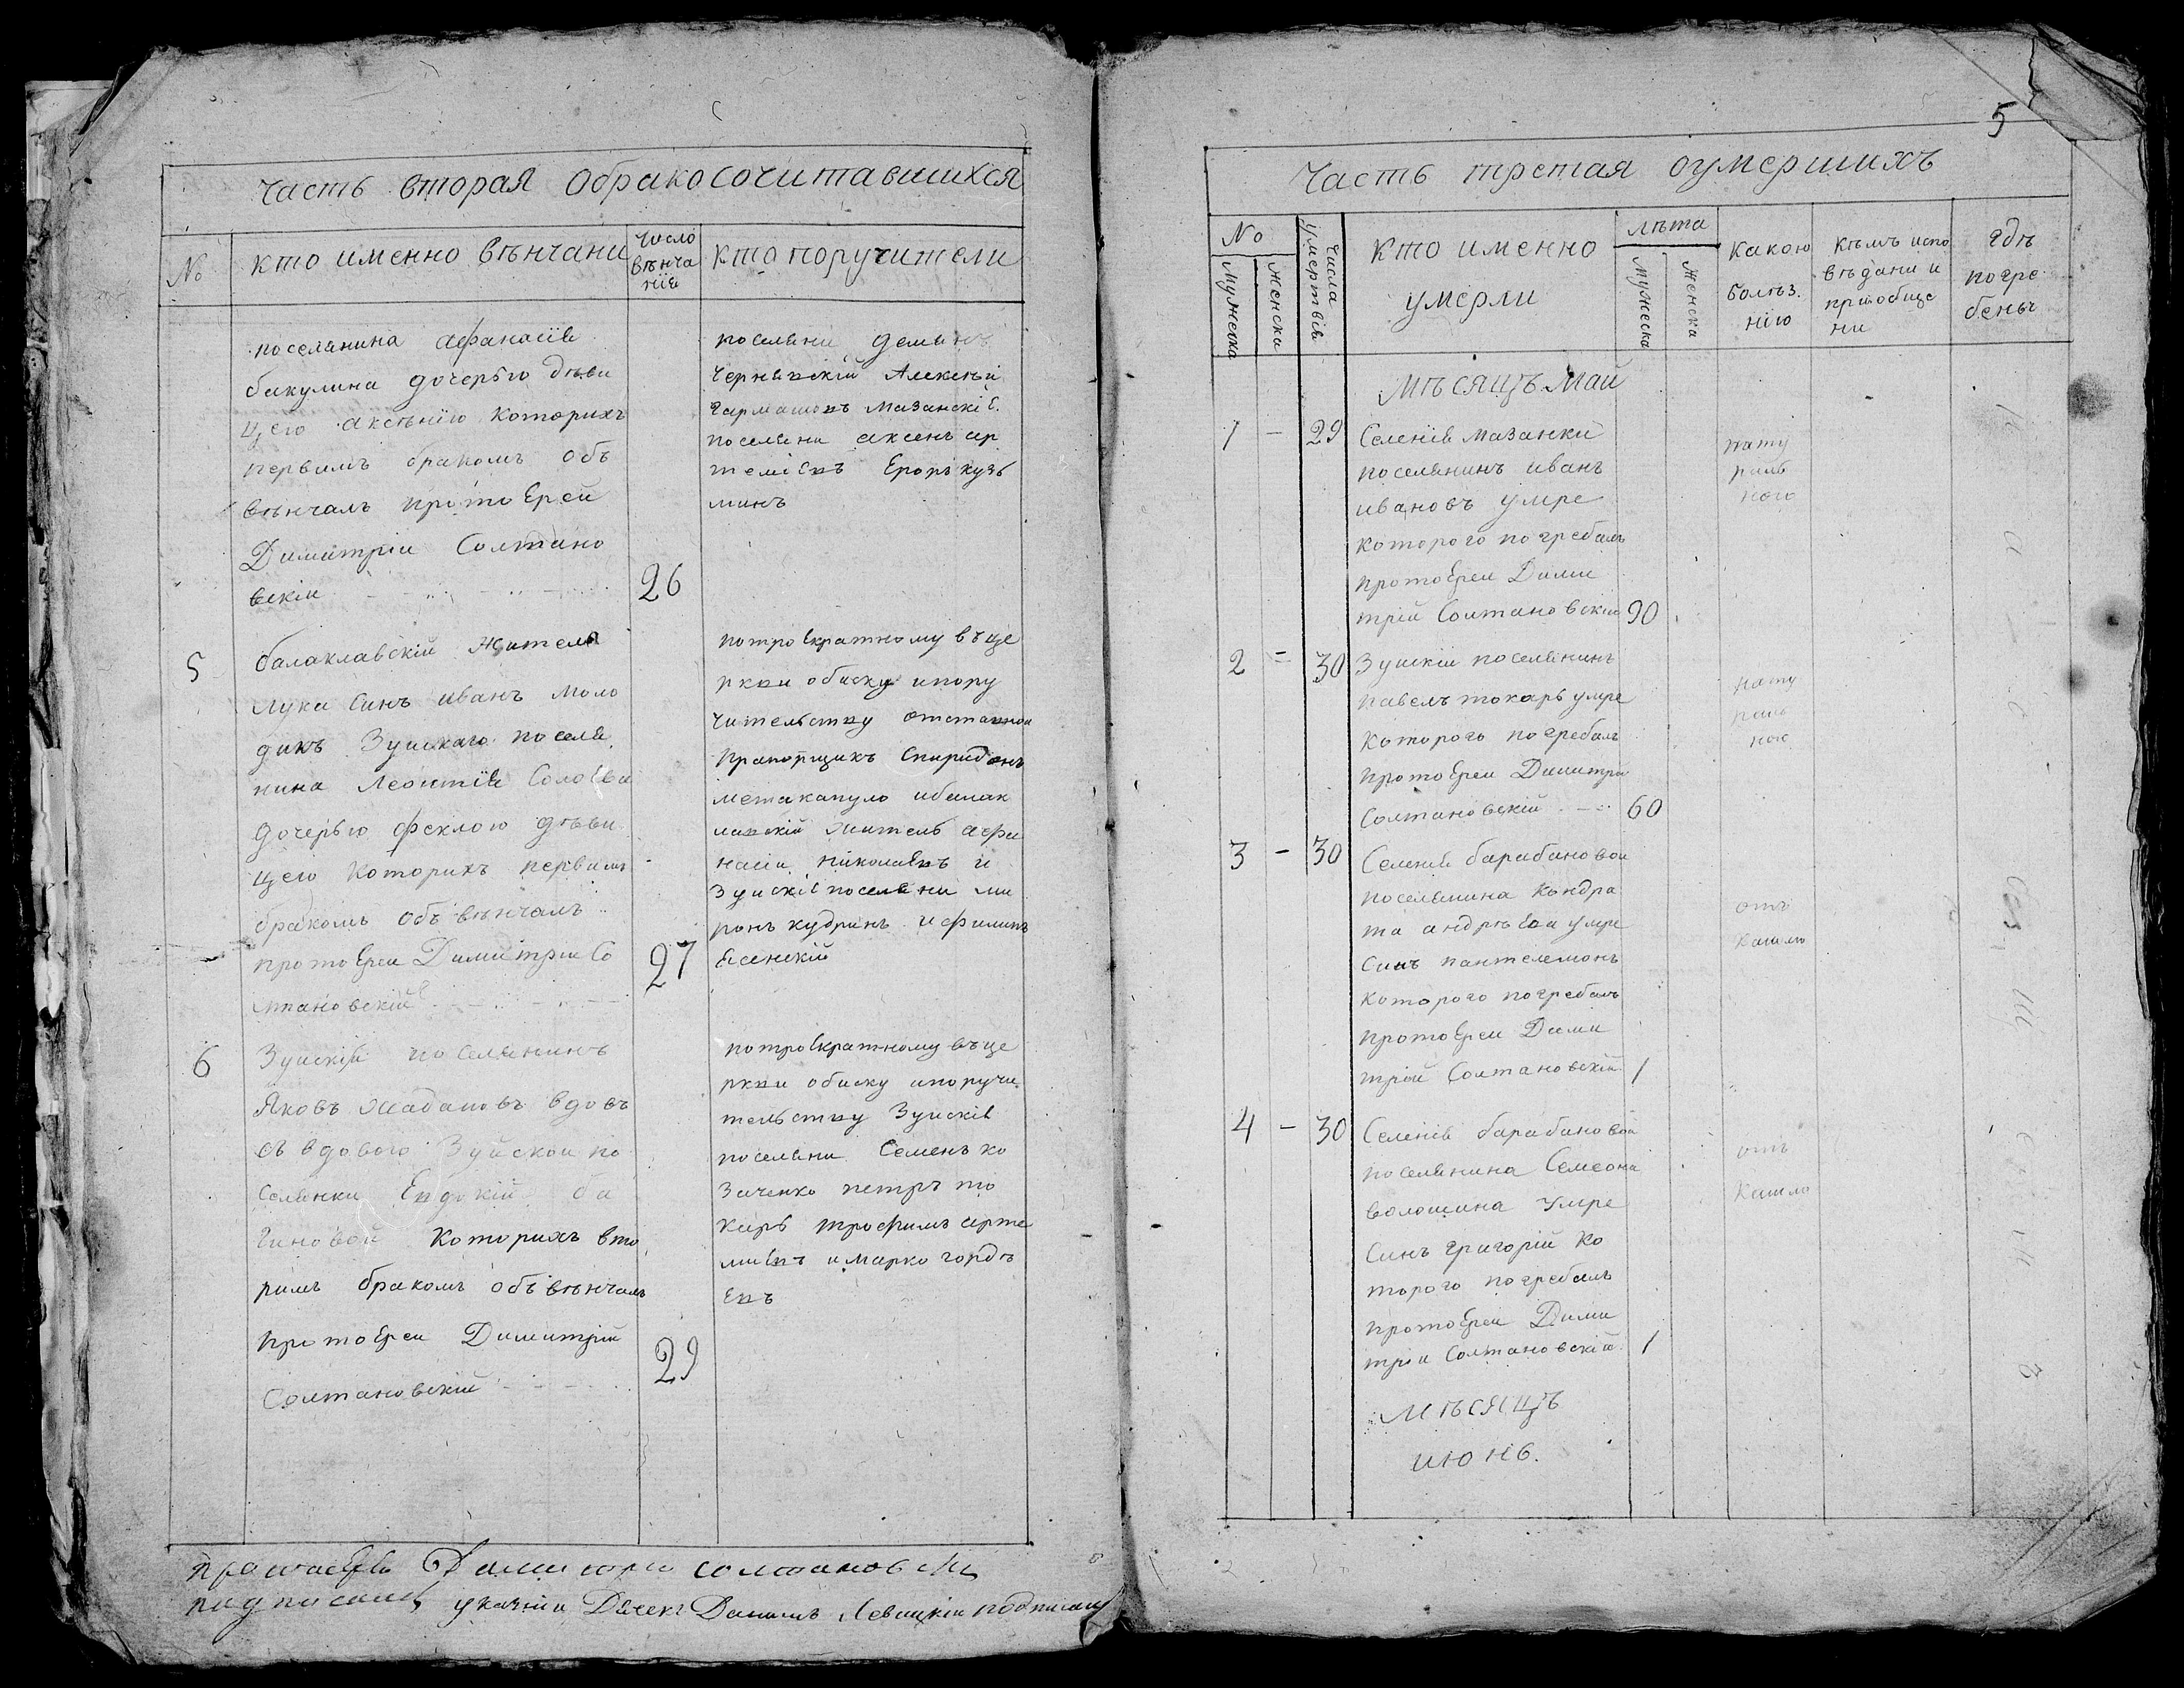 часть вторая обракосочитавшихся
№
кто именно вѣнчани
число
вѣнча
нiя
кто поручители
поселянина афанасiя
бакулина дочерью дѣви
цею аксѣнiю которихъ
первимъ бракомъ объ
вѣнчалъ протоЕрей
Димитрiи Солтано
вскiи
26
поселяни демянъ
чернявскiй Алексѣй
гармашовъ мазанскiЕ
поселяни аксенъ ар
темiЕвъ Егоръ кузь
минъ
5
балаклавскiй житель
лука синъ иванъ моло
дикъ Зуискаго поселя
нина леонтiя СолоЕва
дочерью феклою дѣви
цею которихъ первимъ
бракомъ объвѣнчалъ
протоЕреи Димитрiи Со
лтановскiй
27
потроЕкратному въце
ркви обиску ипору
чительству отставнои
Прапорщикъ Спиридонъ
метакапуло ибалак
лавскiй житель афа
насiи николаЕвъ и
ЗуискiЕ поселяни ми
ронъ кудринъ ифилипъ
Ясенскiй
6
Зуискiй поселянинъ
Яковъ жабановъ вдовъ
съ вдового Зуйскои по
селянки Евдокiй ба
гиновой которихъ вто
римъ бракомъ объвѣнчалъ
протоЕреи Димитрiи
Солтановскiй
29
потроЕкратному въце
ркви обиску ипоручи
тельству ЗуискiЕ
поселяни Семенъ ко
заченко петръ то
карь трофимъ арте
миЕвъ и марко гордѣ
Евъ
протоЕрей Димитрiи солтановскiи
подписалъ указнiи Дячекъ Даниилъ Левицкiи подписалъ
5
Часть третая оумершихъ
№
Мужеска
Женски
числа
умертвiя
кто именно
умерли
лѣта
мужеска
женска
какою
болѣз.
нiю
кѣмъ испо
вѣдани и
прiобще
ни
гдѣ
погре
бены
Мѣсяцъ Май
1 – 29
Селенiя мазанки
поселянинъ иванъ
ивановъ умре
которого погребалъ
протоЕреи Дими
трiй Солтановскiй 90
нату
раль
ного
2 = 30
Зуискiи поселянинъ
павелъ токарь умре
которого погребалъ
протоЕреи Димитрiи
Солтановскiй 60
нату
раль
ною
3 – 30
Селенiя барабановои
поселянина кондра
та андрѣЕва умре
синъ пантелемонъ
которого погребалъ
протоЕреи Дими
трiй Солтановскiй 1
отъ
кашлю
4 – 30
Селенiя барабановой
поселянина Семеона
волошина умре
синъ григорiй ко
торого погребалъ
протоЕреи Дими
трiи Солтановскiй 1
отъ
кашлю
Мѣсяцъ
июнь.